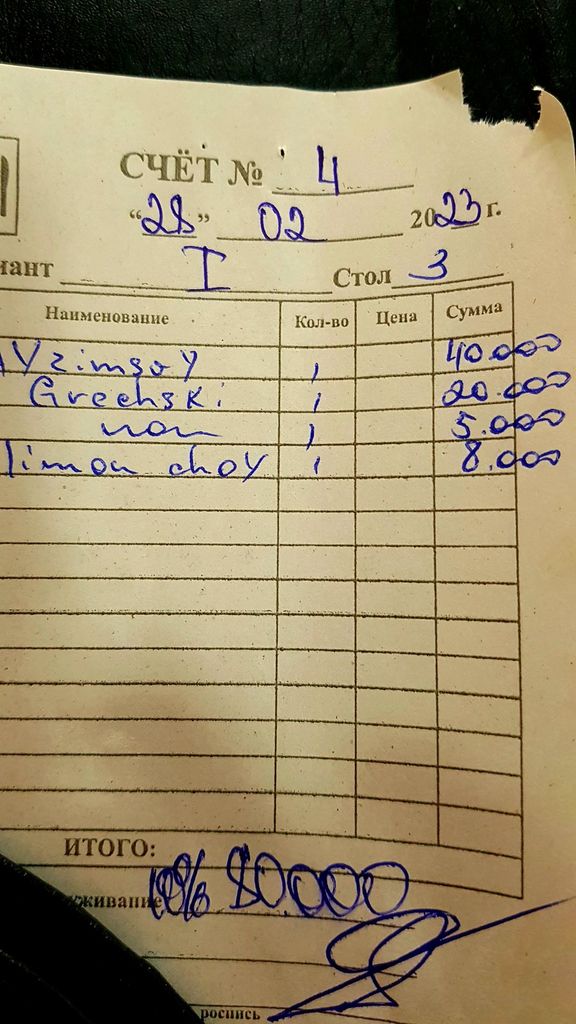 СЧЁТ № 4
"28" 02 2023 г.
иант I Стол 3
Наименование Кол-во Цена Сумма
Vzimsoy 1 40.000
Grechski 1 20.000
non 1 5.000
limon choy 1 8.000
ИТОГО:
уживание 10% 80.000
роспись